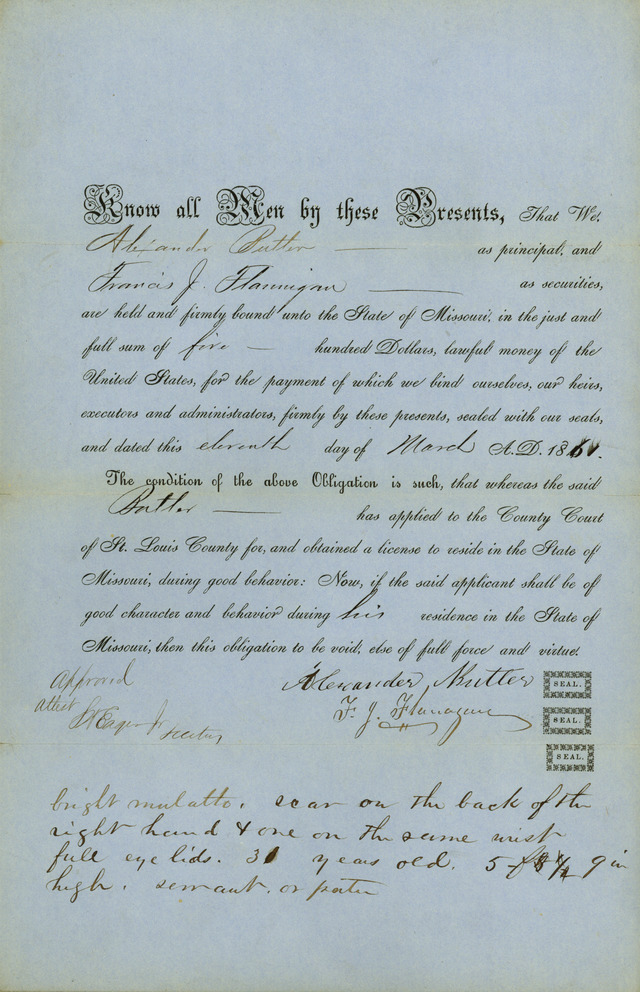 Know all Men by these Presents, That We,
Alexander Butler — as principal, and
Francis J. Flannigan — as securities,
are held and firmly bound unto the State of Missouri, in the just and
full sum of five — hundred Dollars, lawful money of the
United States, for the payment of which we bind ourselves, our heirs,
executors and administrators, firmly by these presents, sealed with our seals,
and dated this eleventh day of March A.D. 1861.
The condition of the above Obligation is such, that whereas the said
Butler — has applied to the County Court
of St. Louis County for, and obtained a license to reside in the State of
Missouri, during good behavior: Now, if the said applicant shall be of
good character and behavior during his residence in the State of
Missouri, then this obligation to be void, else of full force and virtue.
Approved
Alexander Butler SEAL.
attest
F. J. Flanagan SEAL.
SEAL.
bright mulatto. scar on the back of the
right hand & one on the same wrist
full eye lids. 31 years old. 5 f 9 in
high. servant. or